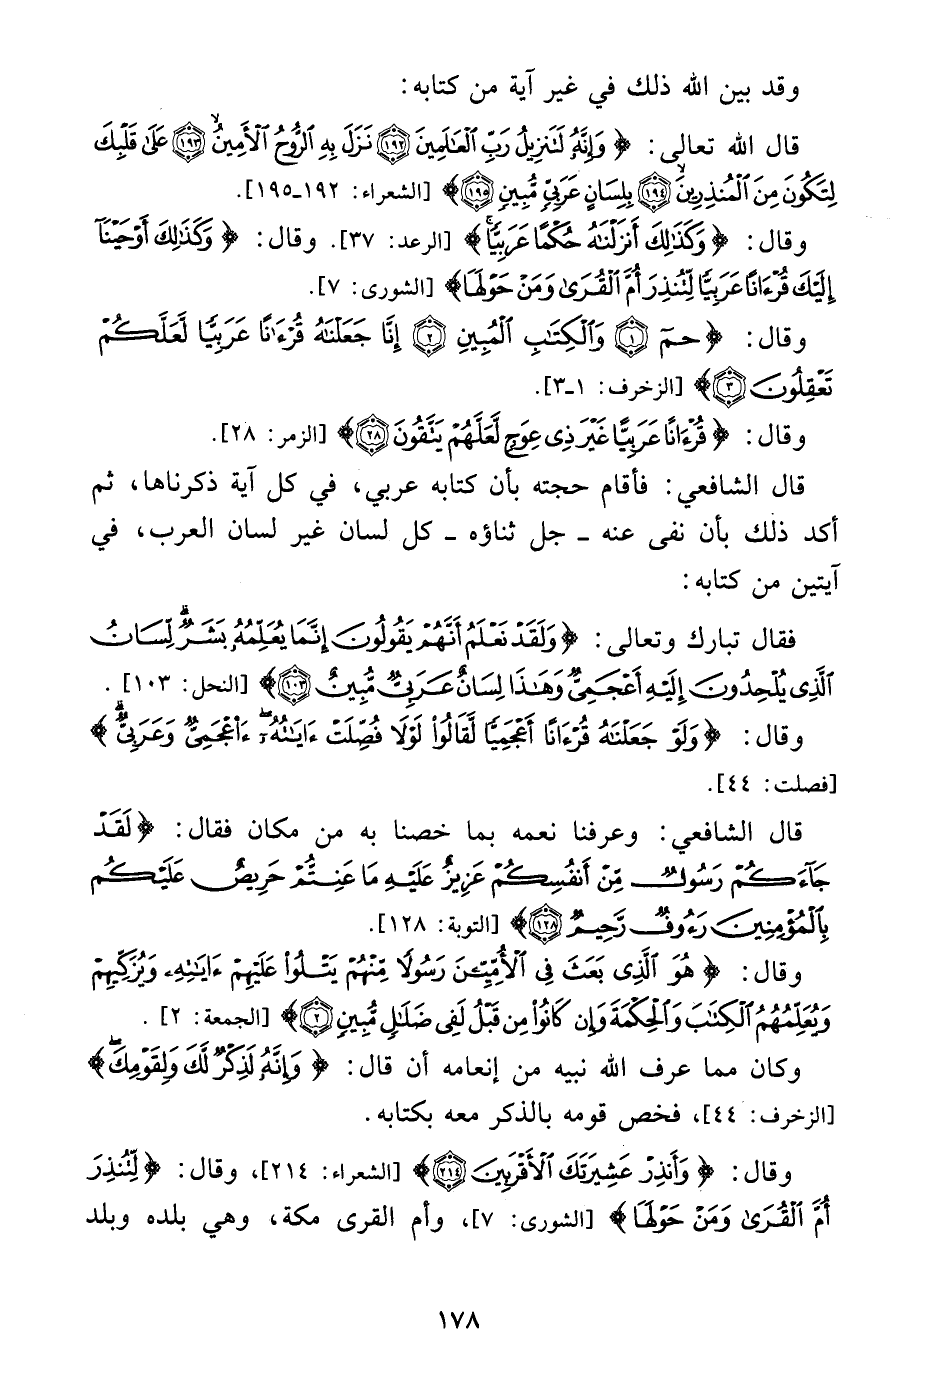 وقد بين الله ذلك في غير آية من كتابه:
قال الله تعالى: ﴿وَإِنَّهُ لَتَنزِيلُ رَبِّ الْعَالَمِينَ ۝١٩٢ نَزَلَ بِهِ الرُّوحُ الْأَمِينُ ۝١٩٣ عَلَىٰ قَلْبِكَ
لِتَكُونَ مِنَ الْمُنذِرِينَ ۝١٩٤ بِلِسَانٍ عَرَبِيٍّ مُّبِينٍ ۝١٩٥﴾ [الشعراء: ١٩٢-١٩٥].
وقال: ﴿وَكَذَٰلِكَ أَنزَلْنَاهُ حُكْمًا عَرَبِيًّا﴾ [الرعد: ٣٧]. وقال: ﴿وَكَذَٰلِكَ أَوْحَيْنَا
إِلَيْكَ قُرْءَانًا عَرَبِيًّا لِّتُنذِرَ أُمَّ الْقُرَىٰ وَمَنْ حَوْلَهَا﴾ [الشورى: ٧].
وقال: ﴿حمٓ ۝١ وَالْكِتَابِ الْمُبِينِ ۝٢ إِنَّا جَعَلْنَاهُ قُرْءَانًا عَرَبِيًّا لَّعَلَّكُمْ
تَعْقِلُونَ ۝٣﴾ [الزخرف: ١-٣].
وقال: ﴿قُرْءَانًا عَرَبِيًّا غَيْرَ ذِى عِوَجٍ لَّعَلَّهُمْ يَتَّقُونَ ۝٢٨﴾ [الزمر: ٢٨].
قال الشافعي: فأقام حجته بأن كتابه عربي، في كل آية ذكرناها، ثم
أكد ذلك بأن نفى عنه - جل ثناؤه - كل لسان غير لسان العرب، في
آيتين من كتابه:
فقال تبارك وتعالى: ﴿وَلَقَدْ نَعْلَمُ أَنَّهُمْ يَقُولُونَ إِنَّمَا يُعَلِّمُهُ بَشَرٌ لِّسَانُ
الَّذِى يُلْحِدُونَ إِلَيْهِ أَعْجَمِىٌّ وَهَٰذَا لِسَانٌ عَرَبِىٌّ مُّبِينٌ ۝١٠٣﴾ [النحل: ١٠٣].
وقال: ﴿وَلَوْ جَعَلْنَاهُ قُرْءَانًا أَعْجَمِيًّا لَّقَالُوا۟ لَوْلَا فُصِّلَتْ ءَايَاتُهُ ءَا۬عْجَمِىٌّ وَعَرَبِىٌّ﴾
[فصلت: ٤٤].
قال الشافعي: وعرفنا نعمه بما خصنا به من مكان فقال: ﴿لَقَدْ
جَآءَكُمْ رَسُولٌ مِّنْ أَنفُسِكُمْ عَزِيزٌ عَلَيْهِ مَا عَنِتُّمْ حَرِيصٌ عَلَيْكُم
بِالْمُؤْمِنِينَ رَءُوفٌ رَّحِيمٌ ۝١٢٨﴾ [التوبة: ١٢٨].
وقال: ﴿هُوَ الَّذِى بَعَثَ فِى الْأُمِّيِّـنَ رَسُولًا مِّنْهُمْ يَتْلُوا۟ عَلَيْهِمْ ءَايَاتِهِ وَيُزَكِّيهِمْ
وَيُعَلِّمُهُمُ الْكِتَابَ وَالْحِكْمَةَ وَإِن كَانُوا۟ مِن قَبْلُ لَفِى ضَلَالٍ مُّبِينٍ ۝٢﴾ [الجمعة: ٢].
وكان مما عرف الله نبيه من إنعامه أن قال: ﴿وَإِنَّهُ لَذِكْرٌ لَّكَ وَلِقَوْمِكَ﴾
[الزخرف: ٤٤]، فخص قومه بالذكر معه بكتابه.
وقال: ﴿وَأَنذِرْ عَشِيرَتَكَ الْأَقْرَبِينَ ۝٢١٤﴾ [الشعراء: ٢١٤]، وقال: ﴿لِّتُنذِرَ
أُمَّ الْقُرَىٰ وَمَنْ حَوْلَهَا﴾ [الشورى: ٧]، وأم القرى مكة، وهي بلده وبلد
١٧٨